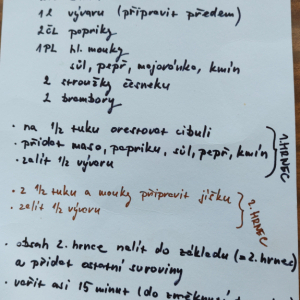 1 l vývaru (připravit předem)
2 ČL papriky
1 PL hl. mouky
sůl, pepř, majoránka, kmín
2 stroužky česneku
2 brambory
• na 1/2 tuku orestovat cibuli
• přidat maso, papriku, sůl, pepř, kmín
• zalít 1/2 vývaru
1. HRNEC
• z 1/2 tuku a mouky připravit jíšku
• zalít 1/2 vývaru
2. HRNEC
• obsah 2. hrnce nalít do základu (= 2. hrnec)
a přidat ostatní suroviny
• vařit asi 15 minut (do